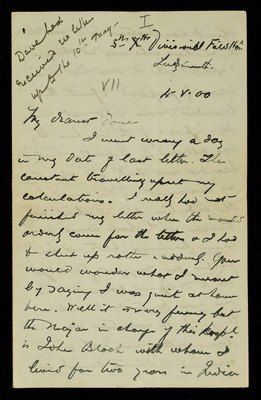 Dave has
received no letter
up to the 10th May.
I
5th Divisional Field Hos.
Ladysmith
4-V-00
VII
My dearest Dave
I went wrong a day
in my date of last letter. The
constant travelling upset my
calculations. I really had not
finished my letter when the
orderly came for the letters & I had
to shut up rather suddenly. You
would wonder what I meant
by saying I was quite at home
here. Well it is very funny but
the Major in charge of this Hospl.
is John Black with whom I
lived for two years in India